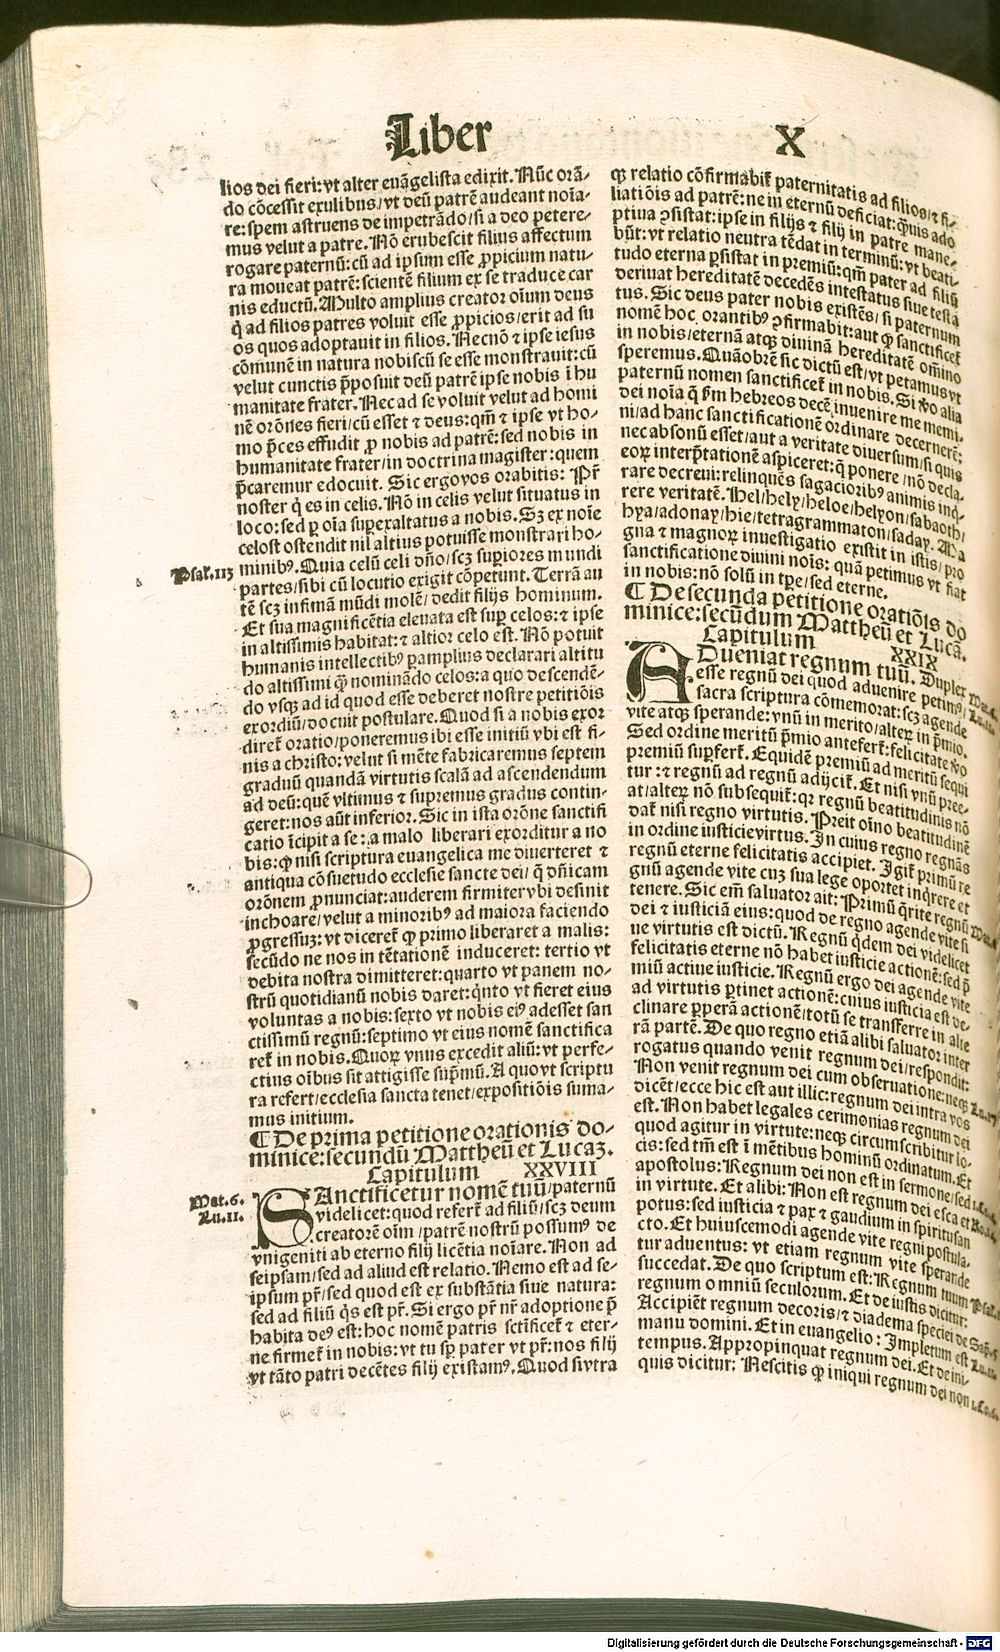 Liber X
lios dei fieri: vt alter euāgelista edixit. Nūc orā⸗
do cōcessit exulibus/vt deū patrē audeant noīa⸗
re: spem astruens de impetrādo/si a deo petere⸗
mus velut a patre. Nō erubescit filius affectum
rogare paternū: cū ad ipsum esse ꝓpicium natu⸗
ra moueat patrē: scientē filium ex se traduce car
nis eductū. Multo amplius creator oīum deus
q̇ ad filios patres voluit esse ꝓpicios/erit ad su
os quos adoptauit in filios. Necnō ⁊ ipse iesus
cōmunē in natura nobiscū se esse monstrauit: cū
velut cunctis p̄posuit deū patrē ipse nobis ī hu
manitate frater. Nec ad se voluit velut ad homi
nē orōnes fieri/cū esset ⁊ deus: qm̄ ⁊ ipse vt ho⸗
mo p̄ces effudit ꝓ nobis ad patrē: sed nobis in
humanitate frater/in doctrina magister: quem
p̄caremur edocuit. Sic ergo vos orabitis: Pr̄
noster q̇ es in celis. Nō in celis velut situatus in
loco: sed ꝑ oīa suꝑexaltatus a nobis. Sꝫ ex noīe
celost ostendit nil altius potuisse monstrari ho⸗
Psal. 113 minibꝰ. Quia celū celi dño/scꝫ suꝑiores mundi
partes/sibi cū locutio exigit cōpetunt. Terrā au
tē scꝫ infimā mūdi molē/dedit filijs hominum.
Et sua magnificētia eleuata est suꝑ celos: ⁊ ipse
in altissimis habitat: ⁊ altior celo est. Nō potuit
humanis intellectibꝰ ꝑamplius declarari altitu
do altissimi qꝫ nominādo celos: a quo descendē⸗
do vsqꝫ ad id quod esse deberet nostre petitiōis
exordiū/docuit postulare. Quod si a nobis exor
diret̃ oratio/poneremus ibi esse initiū vbi est fi⸗
nis a christo: velut si mēte fabricaremus septem
graduū quandā virtutis scalā ad ascendendum
ad deū: quē vltimus ⁊ supremus gradus contin⸗
geret: nos aūt inferior. Sic in ista orōne sanctifi
catio īcipit a se: a malo liberari exorditur a no
bis: ꝙ nisi scriptura euangelica me diuerteret ⁊
antiqua cōsuetudo ecclesie sancte dei/ q̄ dñicam
orōnem ꝓnunciat: auderem firmiter vbi desinit
inchoare/velut a minoribꝰ ad maiora faciendo
ꝓgressuꝫ: vt diceret̃ ꝙ primo liberaret a malis:
secūdo ne nos in tētationē induceret: tertio vt
debita nostra dimitteret: quarto vt panem no⸗
strū quotidianū nobis daret: q̇nto vt fieret eius
voluntas a nobis: sexto vt nobis eiꝰ adesset san
ctissimū regnū: septimo vt eius nomē sanctifica
ret̃ in nobis. Quoꝝ vnus excedit aliū: vt perfe⸗
ctius oībus sit attigisse supm̄ū. A quo vt scriptu
ra refert/ecclesia sancta tenet/expositiōis suma⸗
mus initium.
¶ De prima petitione orationis do⸗
minice: secundū Mattheū et Lucaꝫ.
Capitulum XXVIII
Mat. 6. SAnctificetur nomē tuū/paternū
Lu. 11. videlicet: quod refert̃ ad filiū/scꝫ deum
creatorē oīm/patrē nostrū possumꝰ de
vnigeniti ab eterno filij licētia noīare. Non ad
seipsam/sed ad aliud est relatio. Nemo est ad se⸗
ipsum pr̄/sed quod est ex substātia siue natura:
sed ad filiū q̇s est pr̄. Si ergo pr̄ nr̄ adoptione p̄
habita deꝰ est: hoc nomē patris sctīficet̃ ⁊ eter⸗
ne firmet̃ in nobis: vt tu sꝑ pater vt pr̄: nos filij
vt tāto patri decētes filij existamꝰ. Quod si vtra
qꝫ relatio cōfirmabit̃ paternitatis ad filios/⁊ fi⸗
liatiōis ad patrē: ne in eternū deficiat: q̇uis ado
ptiua ꝯsistat: ipse in filijs ⁊ filij in patre mane⸗
būt: vt relatio neutra tēdat in terminū: vt beati⸗
tudo eterna ꝑsistat in premiū: qm̄ pater ad filiū
deriuat hereditatē decedēs intestatus siue testa
tus. Sic deus pater nobis existēs/ si paternum
nomē hoc orantibꝰ ꝯfirmabit: aut ꝙ sanctificet̃
in nobis/eternā atqꝫ diuinā hereditatē om̄ino
speremus. Quāobrē sic dictū est/vt petamus vt
paternū nomen sanctificet̃ in nobis. Si v̊o alia
dei noīa q̄ ẜm hebreos decē inuenire me memi⸗
ni/ad hanc sanctificationē ordinare decernerē:
nec absonū esset/aut a veritate diuersum/si quis
eoꝝ interp̄tationē aspiceret: q̄ ponere/nō decla⸗
rare decreui: relinquēs sagacioribꝰ animis inq̇⸗
rere veritatē. Hel/hely/heloe/helyon/sabaoth/
hya/adonay/hie/tetragrammaton/saday. Ma
gna ⁊ magnoꝝ inuestigatio existit in istis/pro
sanctificatione diuini noīs: quā petimus vt fiat
in nobis: nō solū in tꝑe/sed eterne.
¶ De secunda petitione oratiōis do
minice: secūdum Mattheū et Lucā.
Capitulum XXIX
ADueniat regnum tuū. Duplex
esse regnū dei quod aduenire petimꝰ/
sacra scriptura cōmemorat: scꝫ agende
vite atqꝫ sperande: vnū in merito/alteꝝ in p̄mio.
Sed ordine meritū p̄mio antefert̃: felicitate v̊o
premiū suꝑfert̃. Equidē premiū ad meritū sequi
tur: ⁊ regnū ad regnū adijcit̃. Et nisi vnū pree⸗
at/alteꝝ nō subsequit̃: qꝛ regnū beatitudinis nō
dat̃ nisi regno virtutis. Preit oīno beatitudinē
in ordine iusticie virtus. In cuius regno regnās
regnū eterne felicitatis accipiet. Igit̃ primū re
gnū agende vite cuꝫ sua lege oportet inq̇rere et
tenere. Sic em̄ saluator ait: Primū q̄rite regnū
dei ⁊ iusticiā eius: quod de regno agende vite si
ue virtutis est dictū. Regnū q̇dem dei videlicet
felicitatis eterne nō habet iusticie actionē: sed p̄
miū actiue iusticie. Regnū ergo dei agende vite
ad virtutis ꝑtinet actionē: cuius iusticia est de⸗
clinare ꝑperā actionē/totū se transferre in alte
rā partē. De quo regno etiā alibi saluator inter
rogatus quando venit regnum dei/respondit:
Non venit regnum dei cum obseruatione: neqꝫ
dicēt/ecce hic est aut illic: regnum dei intra vos
est. Non habet legales cerimonias regnum dei
quod agitur in virtute: neqꝫ circumscribitur lo⸗
cis: sed tm̄ est ī mētibus hominū ordinatum. Et
apostolus: Regnum dei non est in sermone/sed
in virtute. Et alibi: Non est regnum dei esca et
potus: sed iusticia ⁊ pax ⁊ gaudium in spiritu san
cto. Et huiuscemodi agende vite regni postula⸗
tur aduentus: vt etiam regnum vite sperande
succedat. De quo scriptum est: Regnum tuum
regnum omniū seculorum. Et de iustis dicitur:
Accipiēt regnum decoris/⁊ diadema speciei de
manu domini. Et in euangelio: Impletum est
tempus. Appropinquat regnum dei. Et de ini⸗
quis dicitur: Nescitis ꝙ iniqui regnum dei non
Digitalisierung gefördert durch die Deutsche Forschungsgemeinschaft - DFG